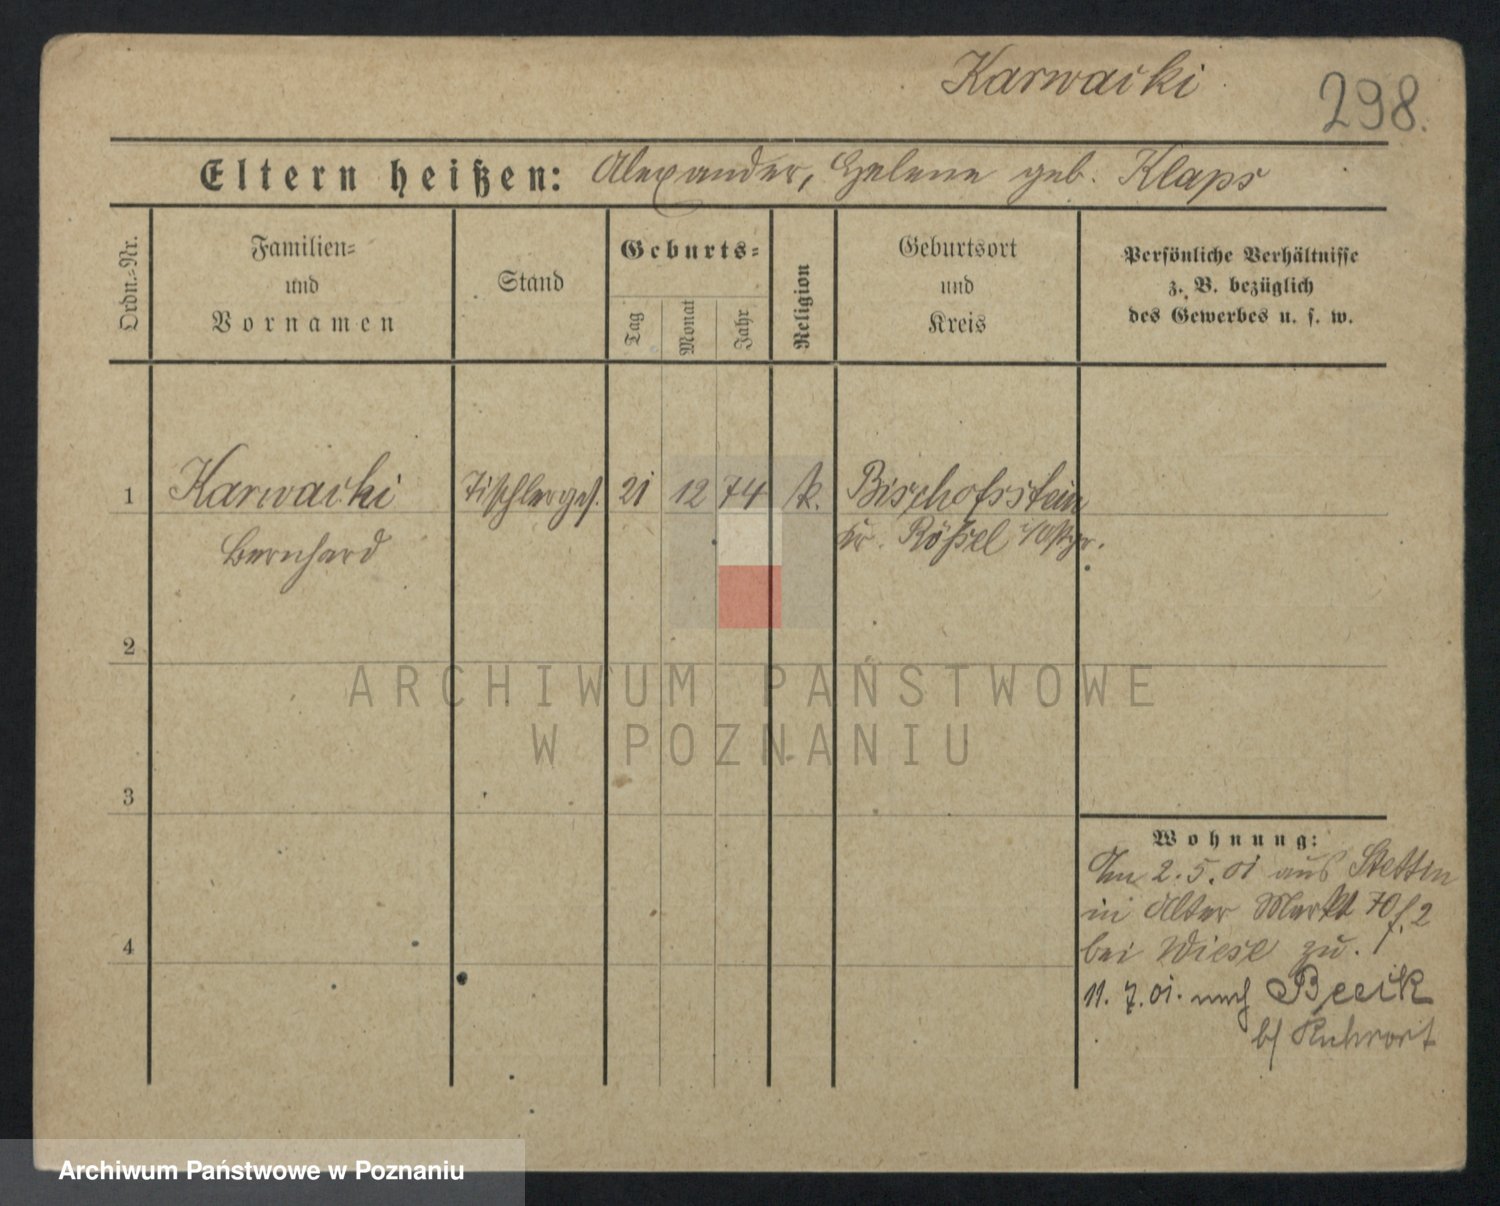 Karwacki
298.
Eltern heißen: Alexander, Helene geb. Klaps
Ordn.-Nr.
Familien-
und
Vornamen
Stand
Geburts-
Tag
Monat
Jahr
Religion
Geburtsort
und
Kreis
Persönliche Verhältnisse
z. B. bezüglich
des Gewerbes u. s. w.
1 Karwacki Tischlerges. 21 12 74 k. Bischofsstein
Bernhard Kr. Rößel i/Ostpr.
2
3
4
Wohnung:
Am 2. 5. 01 aus Stettin
in Alter Markt 70 f. 2
bei Wiese zu.
11. 7. 01. nach Beeck
b/ Ruhrort
ARCHIWUM PAŃSTWOWE
W POZNANIU
Archiwum Państwowe w Poznaniu